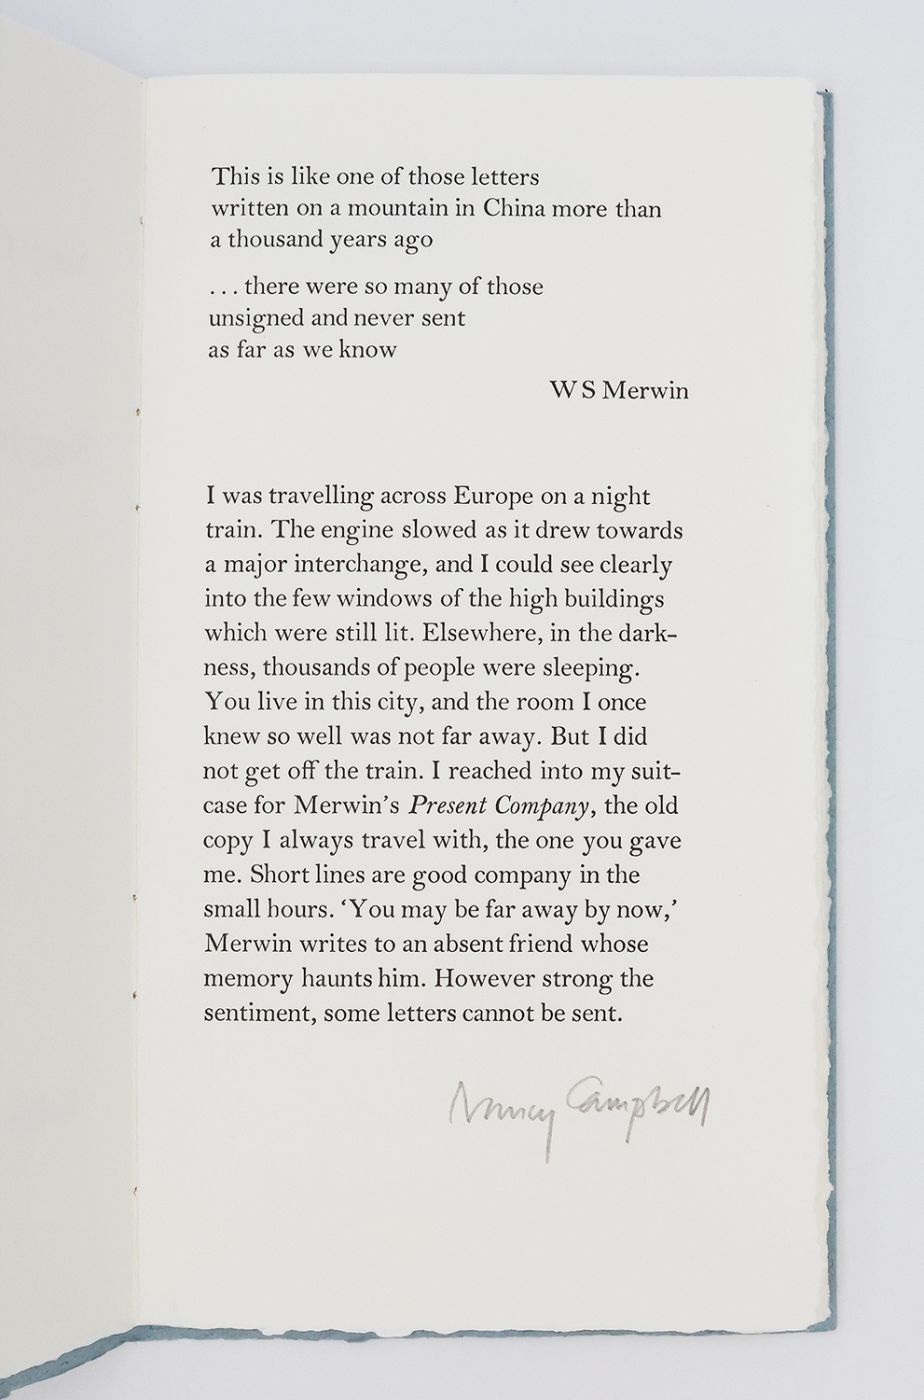 This is like one of those letters
written on a mountain in China more than
a thousand years ago
. . . there were so many of those
unsigned and never sent
as far as we know
W S Merwin
I was travelling across Europe on a night
train. The engine slowed as it drew towards
a major interchange, and I could see clearly
into the few windows of the high buildings
which were still lit. Elsewhere, in the dark-
ness, thousands of people were sleeping.
You live in this city, and the room I once
knew so well was not far away. But I did
not get off the train. I reached into my suit-
case for Merwin’s Present Company, the old
copy I always travel with, the one you gave
me. Short lines are good company in the
small hours. ‘You may be far away by now,’
Merwin writes to an absent friend whose
memory haunts him. However strong the
sentiment, some letters cannot be sent.
Nancy Campbell